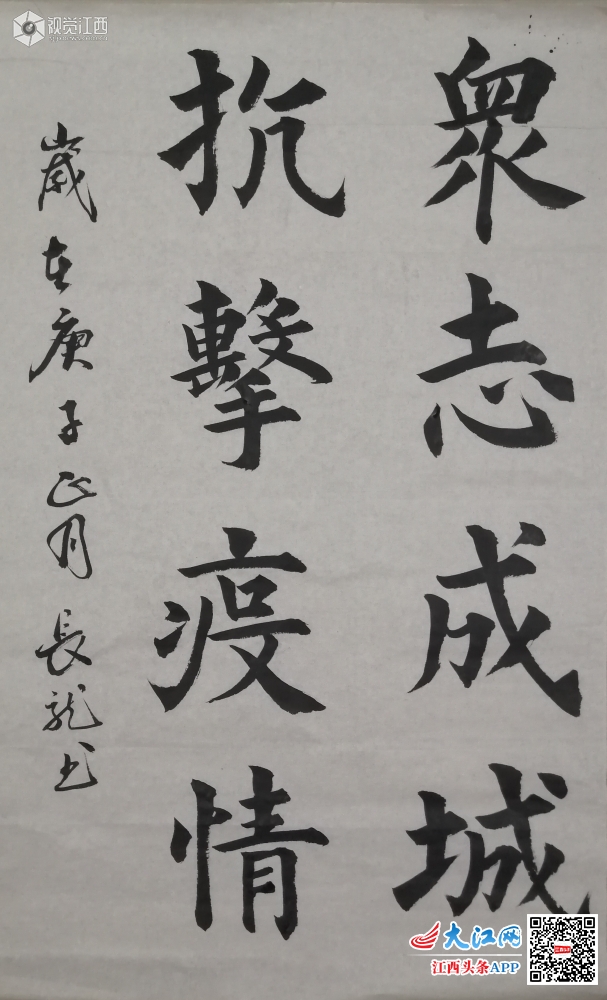 眾志成城
抗擊疫情
歲在庚子正月長龍书
视觉江西
大江网
江西头条APP